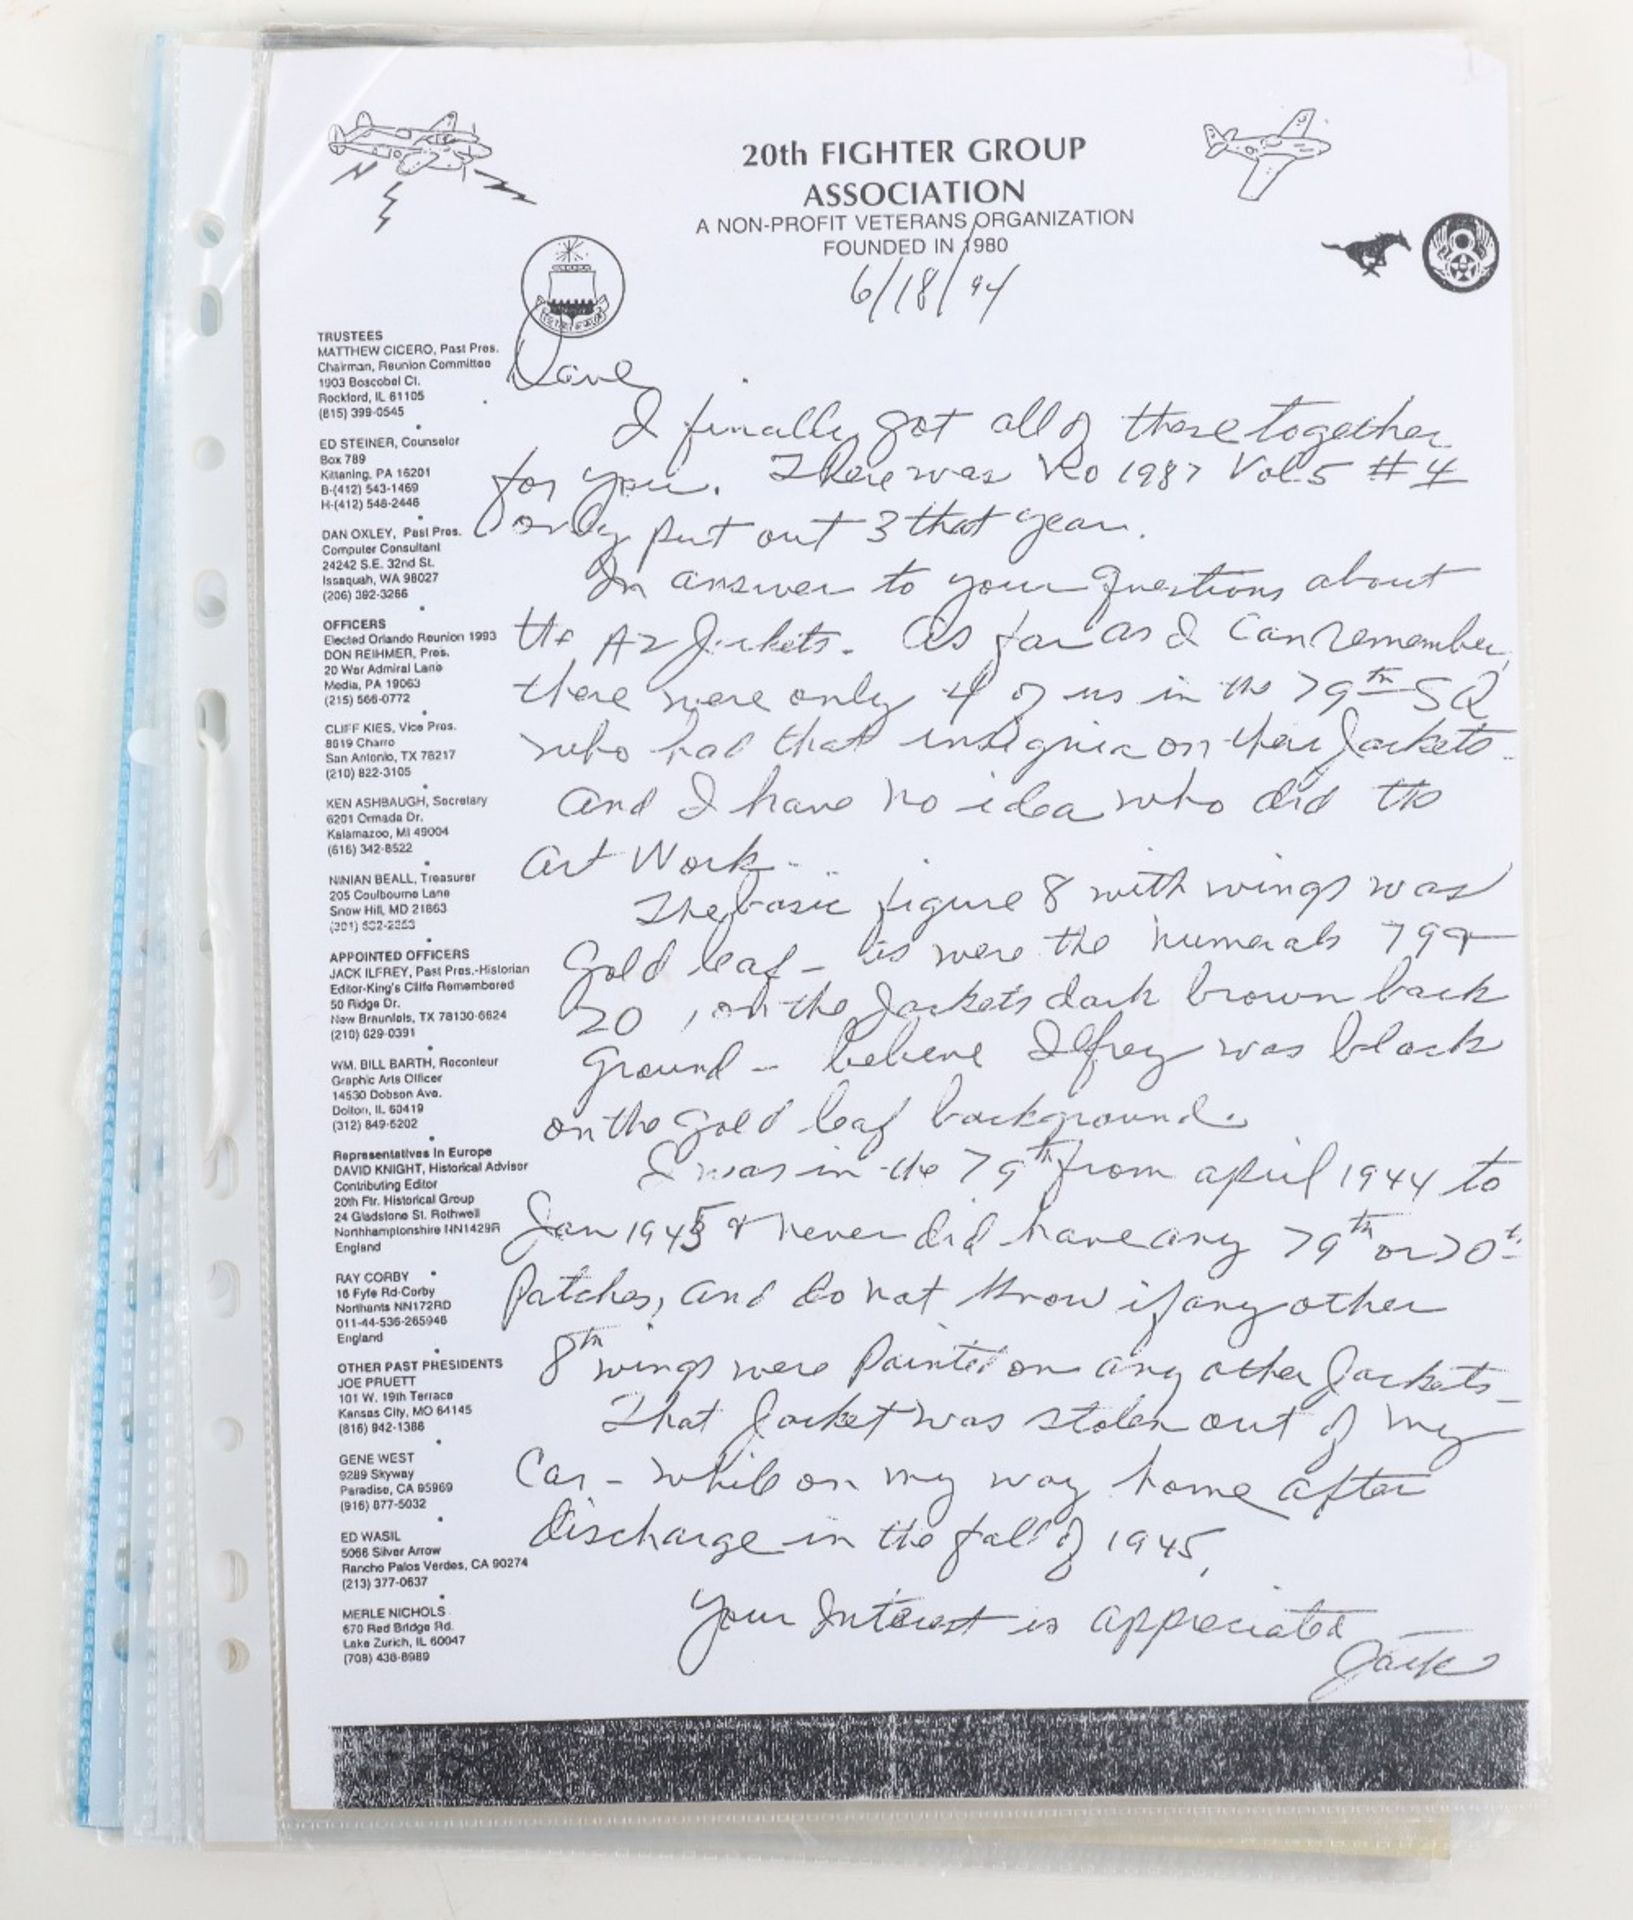 20th FIGHTER GROUP
ASSOCIATION
A NON-PROFIT VETERANS ORGANIZATION
FOUNDED IN 1980
6/18/94
TRUSTEES
MATTHEW CICERO, Past Pres.
Chairman, Reunion Committee
1903 Boscobel Ct.
Rockford, IL 61105
(815) 399-0545
ED STEINER, Counselor
Box 789
Kittaning, PA 16201
B-(412) 543-1469
H-(412) 548-2446
DAN OXLEY, Past Pres.
Computer Consultant
24242 S.E. 32nd St.
Issaquah, WA 98027
(206) 392-3266
OFFICERS
Elected Orlando Reunion 1993
DON REIHMER, Pres.
20 War Admiral Lane
Media, PA 19063
(215) 566-0772
CLIFF KIES, Vice Pres.
8019 Charro
San Antonio, TX 78217
(210) 822-3105
KEN ASHBAUGH, Secretary
6201 Ormada Dr.
Kalamazoo, MI 49004
(616) 342-8522
NINIAN BEALL, Treasurer
205 Coulbourne Lane
Snow Hill, MD 21863
(301) 532-2353
APPOINTED OFFICERS
JACK ILFREY, Past Pres.-Historian
Editor-King's Cliffe Remembered
50 Ridge Dr.
New Braunfels, TX 78130-6624
(210) 629-0391
WM. BILL BARTH, Raconteur
Graphic Arts Officer
14530 Dobson Ave.
Dolton, IL 60419
(312) 849-5202
Representatives in Europe
DAVID KNIGHT, Historical Advisor
Contributing Editor
20th Ftr. Historical Group
24 Gladstone St. Rothwell
Northhamptonshire NN1429R
England
RAY CORBY
16 Fyfe Rd-Corby
Northants NN172RD
011-44-536-265946
England
OTHER PAST PRESIDENTS
JOE PRUETT
101 W. 19th Terrace
Kansas City, MO 64145
(816) 942-1386
GENE WEST
9289 Skyway
Paradise, CA 95969
(916) 877-5032
ED WASIL
5066 Silver Arrow
Rancho Palos Verdes, CA 90274
(213) 377-0637
MERLE NICHOLS
670 Red Bridge Rd.
Lake Zurich, IL 60047
(708) 438-8989
Dave,
I finally got all of these together
for you. There was no 1987 Vol 5 #4
only put out 3 that year.
In answer to your questions about
the A2 Jackets. As far as I can remember,
there were only 4 of us in the 79th SQ
who had that insignia on their Jackets -
and I have no idea who did the
art work -
The basic figure 8 with wings was
gold leaf - as were the numerals 79 &
20, on the Jackets dark brown back
ground - believe Ilfrey was black
on the gold leaf background.
I was in the 79th from April 1944 to
Jan 1945 & never did have any 79th or 20th
patches, and do not know if any other
8th wings were painted on any other Jackets -
That Jacket was stolen out of my
car - while on my way home after
discharge in the fall of 1945.
Your Interest is appreciated
Jack